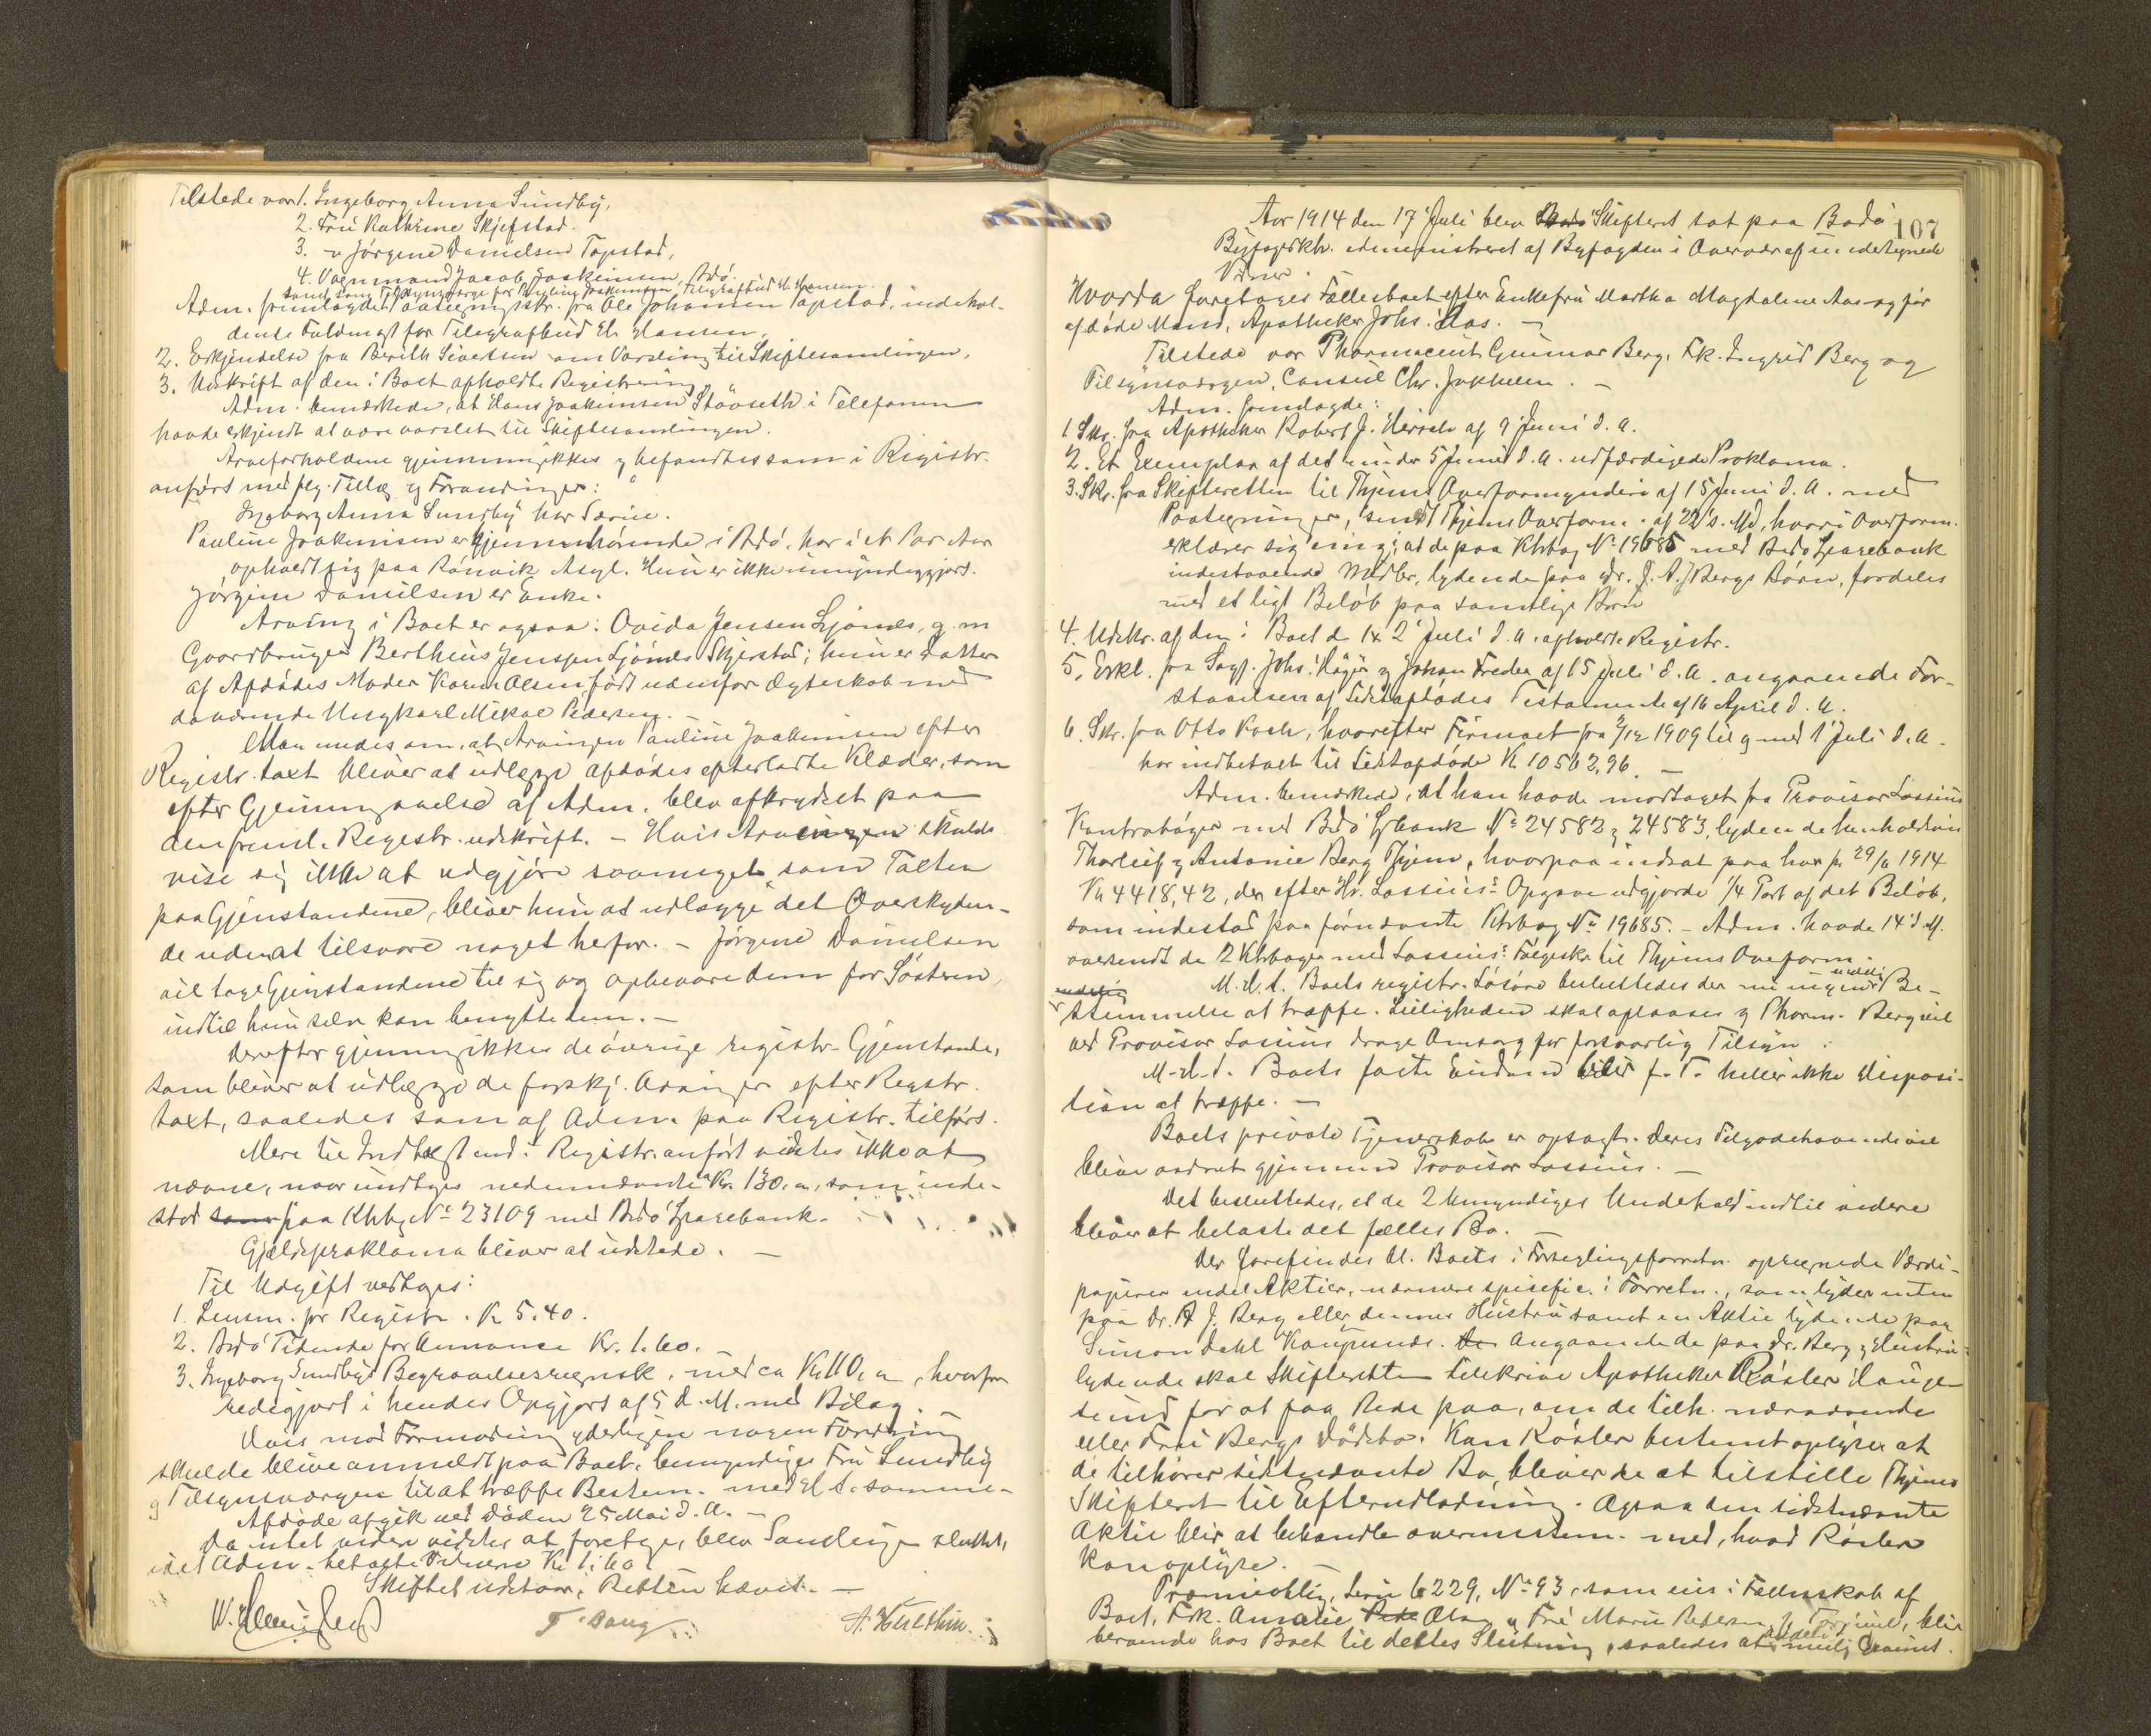 Tilstede var 1. Ingeborg Anna Sundby,
2. Fru Kathrine Skjefstad.
3. " Jørgine Danielsen Topstad,
4. Vognmand Jacob Joakimsen, Bodø.
samt som Tilsynsværge for Pauline Joakimsen, Telegrafbud H. Hansen.
Adm. fremlagde: 1. Paategningsskr. fra Ole Johansen Tapstad, indehol-
dende Fuldmagt for Telegrafbud H. Hansen.
2. Erkjendelse fra Berith Sivertsen om Varsling til Skiftesamlingen,
3. Udskrift af den i Boet afholdte Registrering.
Adm. bemærkede, at Hans Joakimsen Støvseth i Telefonen
havde erkjendt at være varslet til Skiftesamlingen.
Arveforholdene gjennemgikkes og befandtes som i Registr.
anført med flg. Tillæg og Forandringer:
Ingeborg Anna Sundby har Særeie.
Pauline Joakimsen er hjemmehørende i Bodø, har i et Par Aar
opholdt sig paa Rønvik Asyl. Hun er ikke umyndiggjort.
Jørgine Danielsen er Enke.
Arving i Boet er ogsaa: Ovida Jensen Ljønes, g. m.
Gaardbruger Berthius Jenssen Ljønes Skjerstad; hun er Datter
af Afdødes Moder Karen Olsen, født udenfor Ægteskab med
daværende Ungkarl Mikal Pedersen.
Man enedes om, at Arvingen Pauline Joakimsen efter
Registr. taxt bliver at udlægge afdødes efterladte Klæder, som
efter Gjennemgaaelse af Adm. blev afkrydset paa
den freml. Registr. udskrift. – Hvis Arvelodden skulde
vise sig ikke at udgjøre saameget som Taxten
paa Gjenstandene, bliver hun at udlægge det Overskyden-
de uden at tilsvare noget herfor. – Jørgine Danielsen
vil tage Gjenstandene til sig og opbevare dem for Søsteren,
indtil hun selv kan benytte dem. –
Derefter gjennemgikkes de øvrige registr. Gjenstande,
som bliver at udlægge de forskj. Arvinger efter Registr.
taxt, saaledes som af Adm. paa Registr. tilført.
Mere til Indtægt end i Registr. anført vidstes ikke at
nævne, naar undtages nedennævnte ca Kr. 130,00, som inde-
stod som paa Khbg No 23109 med Bodø Sparebank.
Gjældsproklama bliver at udstede. –
Til Udgift vedtoges:
1. Lensm. for Registr. Kr 5.40.
2. Bodø Tidende for Annonce Kr. 1.60.
3. Ingeborg Sundbys Begravelsesregnsk. med ca Kr. 110,00, hvorfor
redegjort i hendes Opgjørt af 5 d. M. med Bilag.
Hvis mod Formodning yderligere nogen Fordring
skulde blive anmeldt paa Boet, bemyndiges Fru Sundby
og Tilsynsværgen til at træffe Bestem. med H. t. samme.
Afdøde afgik ved Døden 25 Mai d. A. –
Da intet videre vidstes at foretage, blev Samlingen sluttet,
idet Adm. betalte Vidnerne Kr 1.60.
Skiftet udstaar, Retten hævet. –
T. Saug
A. Hulthin.
107
Aar 1914 den 17 Juli blev Bodø Skifteret sat paa Bodø
Byfogedktr. administreret af Byfogden i Overvær af undertegnede
Vidner.
Hvorda foretoges Fællesboet efter Enkefru Martha Magdalene Aas og før
afdøde Mand, Apotheker Johs. Aas. –
Tilstede var Pharmaceut Gunnar Berg, Frk. Ingrid Berg og
Tilsynsværgen, Consul Chr. Jakhelln. –
Adm. fremlagde:
1 Skr. fra Apotheker Robert J. Hirsch af 9 Juni d. A.
2. Et Exemplar af det under 5 Juni d. A. udfærdigede Proklama.
3. Skr. fra Skifteretten til Thjems Overformynderi af 15 Juni d. A. med
Paategninger, senest Thjems Overform. af 22 s. Md, hvori Overform.
erklærer sig enig i, at de paa Khbog No 19685 med Bodø Sparebank
indestaaende Midler, lydende paa Dr. J. A. J. Bergs Børn, fordeles
med et ligt Beløb paa samtlige Børn
4. Udskr. af den i Boet d 1 & 2 Juli d. A. afholdte Registr.
5. Erkl. fra Sagf. Johs. Høyer og Johan Fredee af 15 Juli d. A. angaaende For-
staaelsen af sidstafdødes Testamente af 16 April d. A.
6. Skr. fra Otto Koch, hvorefter Firmaet fra 9/12 1909 til og med 1 Juli d. A.
har indbetalt til Sidstafdøde Kr 10562,96. –
Adm. bemærkede, at han havde modtaget fra Provisor Lossius
Kontrabøger med Bodø Spbank No 24582 og 24583, lydende henholdsvis
Thorleif og Antonie Berg Thjem, hvorpaa indsat paa hver pr 29/6 1914
Kr 4418,42, der efter Hr. Lossius's Opgave udgjorde 1/4 Part af det Beløb,
som indestod paa førnævnte Khbog No 19685. – Adm. havde 14 d. M.
oversendt de 2 Khbøger med Lossius's Følgeskr. til Thjems Overform.
M. H. t. Boets registr. Løsøre besluttedes der nu ingen endelig Be-
stemmelse at træffe. Leiligheden skal aflaases og Pharm. Berg vil
ved Provisor Lossius drage Omsorg for forsvarlig Tilsyn.
M. H. t. Boets faste Eiendom blir f. T. heller ikke Disposi-
tion at træffe. –
Boets private Tjenerskab er opsagt. Deres Tilgodehavende vil
blive ordnet gjennem Provisor Lossius. –
Det besluttedes, at de 2 Umyndiges Underhold indtil videre
bliver at belaste det fælles Bo.
Der forefindes bl. Boets i Forseglingsforretn. opregnede Værdi-
papirer endel Aktier, nærmere spicific. i Forretn., som lyder enten
paa Dr. A J. Berg eller dennes Hustru samt en Aktie lydende paa
Simon Dahl Kaupsunds. Der Angaaende de paa Dr. Berg og Hustru
lydende skal Skifteretten tilskrive Apotheker Røsler Hauge-
sund for at faa Rede paa, om de tilh. nærværende
eller Fru Bergs Dødsbo. Kan Røsler bestemt oplyse at
de tilhører sidstnævnte Bo, bliver de at tilstille Thjems
Skifteret til Efterudlodning. Ogsaa den sidstnævnte
Aktie blir at behandle overensstem. med, hvad Røsler
kan oplyse. –
Præmieoblig. Serie 6229, No 93, som eies i Fællesskab af
Boet, Frk. Amalie Aas og Fru Marie Pedersen, blir
beroende hos Boet til dettes Slutning, saaledes at